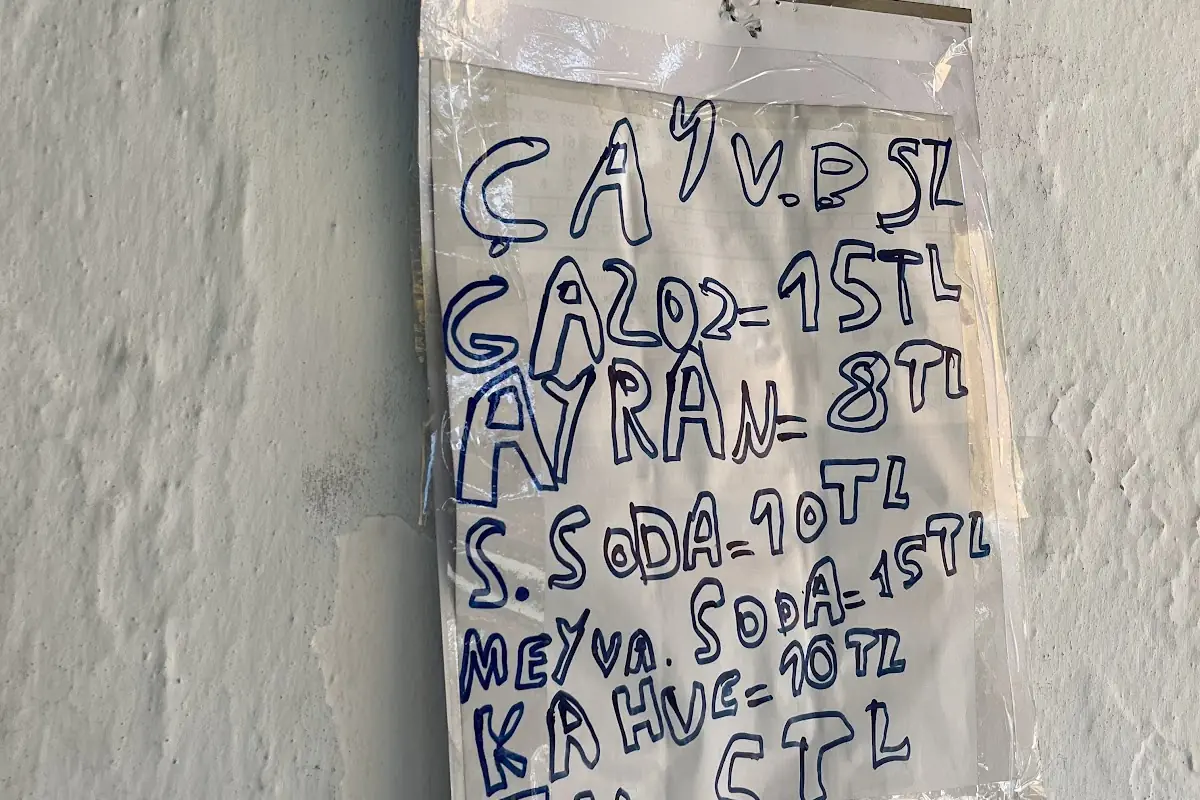 ÇAY V.B 5TL
GAZOZ=15TL
AYRAN=8TL
S. SODA=10TL
MEYVA. SODA=15TL
KAHVE=10TL
5TL